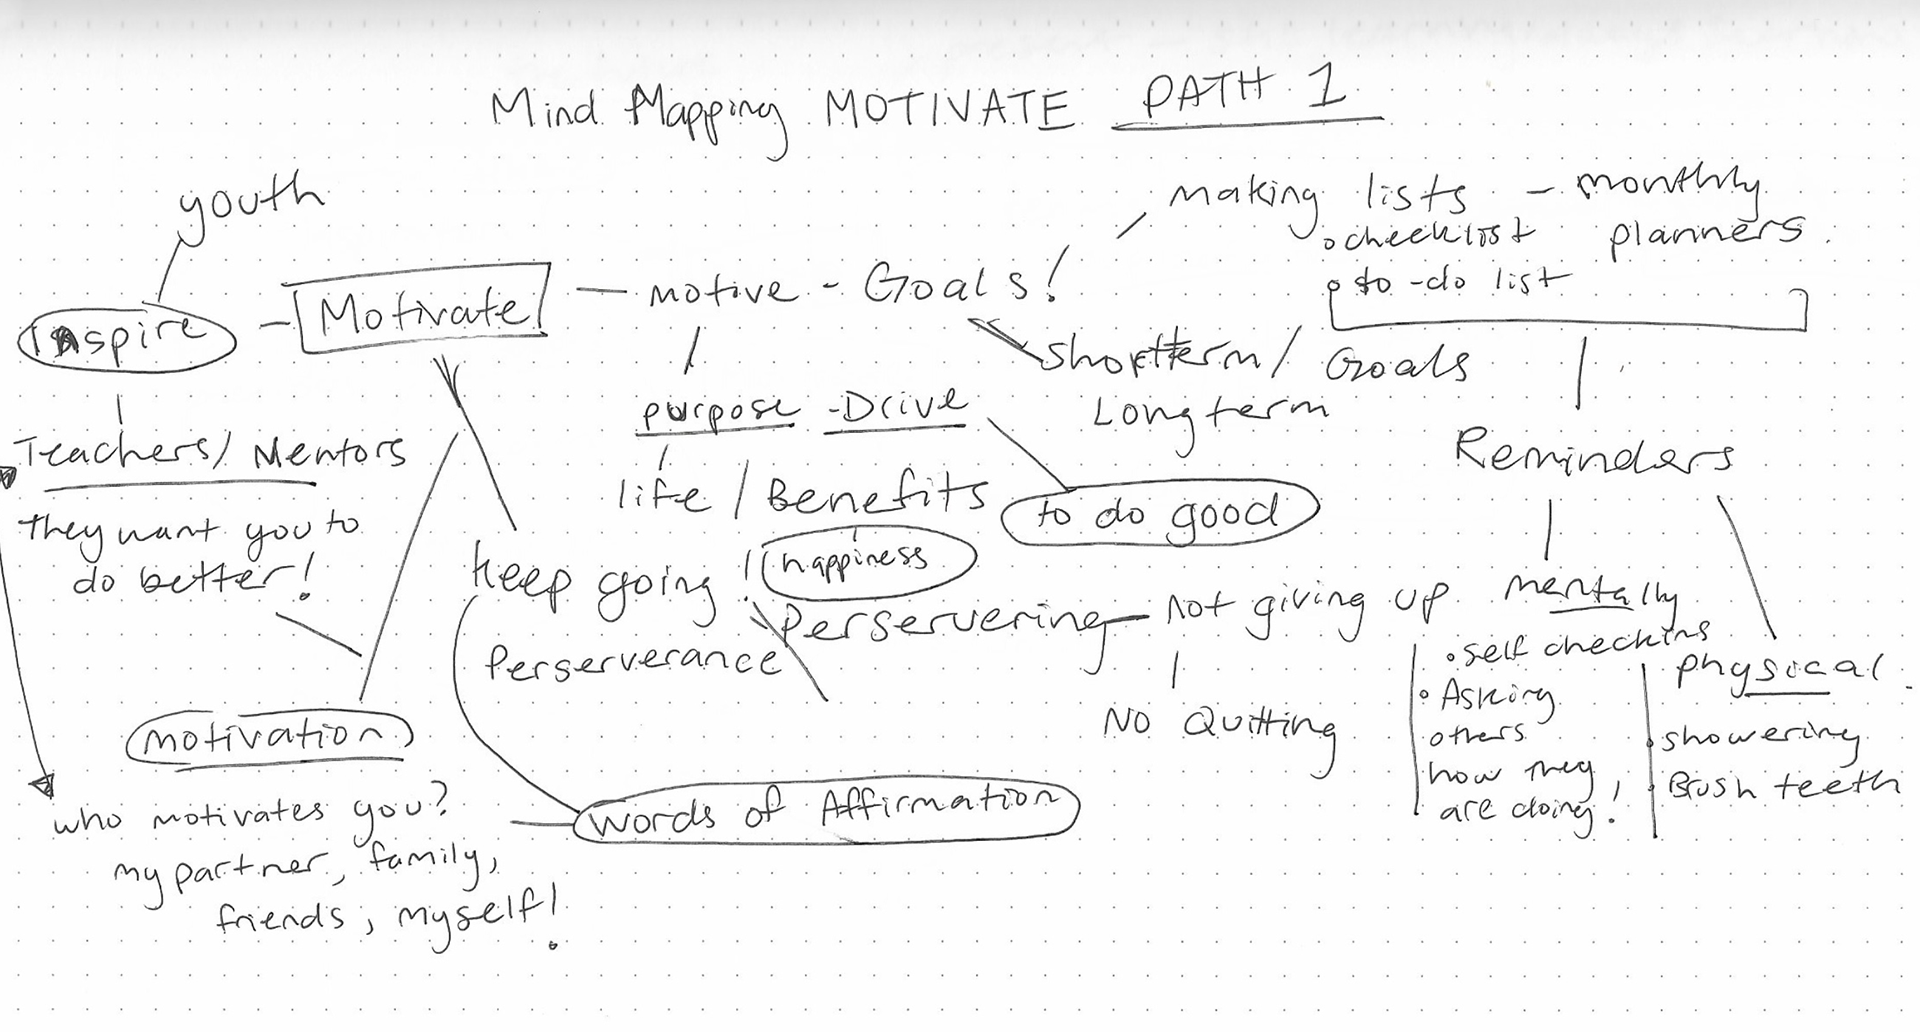 Mind Mapping MOTIVATE PATH 1
youth
Inspire
Motivate
motive - Goals!
making lists - monthly
planners
checklist
to-do list
Shortterm / Goals
Long term
purpose - Drive
life / Benefits
to do good
happiness
Reminders
Teachers / Mentors
they want you to
do better!
keep going!
Perserverance
Perservering - not giving up
No Quitting
mentally
• self checkins
• Asking
others
how they
are doing!
physical
• showering
• Brush teeth
motivation
who motivates you?
my partner, family,
friends, myself!
Words of Affirmation